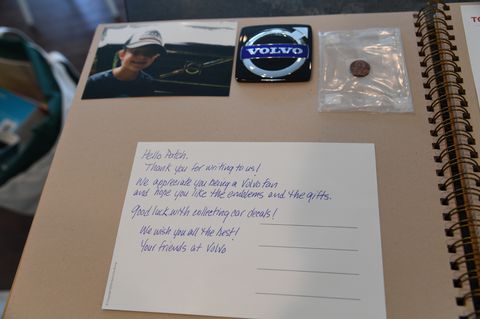 VOLVO
TO
Hello Patch,
Thank you for writing to us!
We appreciate you being a Volvo fan
and hope you like the emblems and the gifts.
Good luck with collecting car decals!
We wish you all the best!
Your friends at Volvo